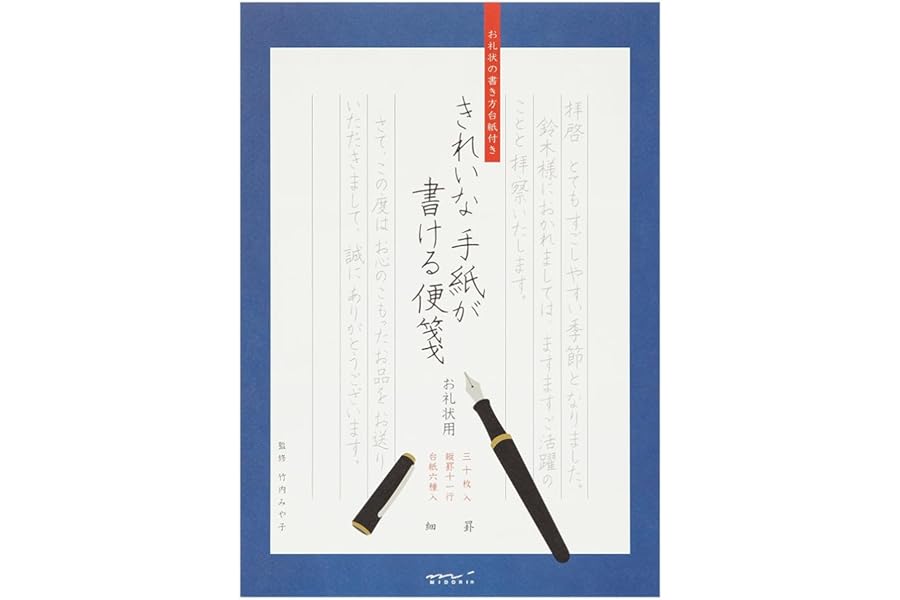 お礼状の書き方台紙付き
拝啓　とてもすごしやすい季節となりました。
鈴木様におかれましては、ますますご活躍の
ことと拝察いたします。
きれいな手紙が
書ける便箋
お礼状用
さて、この度はお心のこもったお品をお送り
いただきまして、誠にありがとうございます。
三十枚入
縦罫十一行
台紙六種入
細罫
監修 竹内みや子
MIDORI